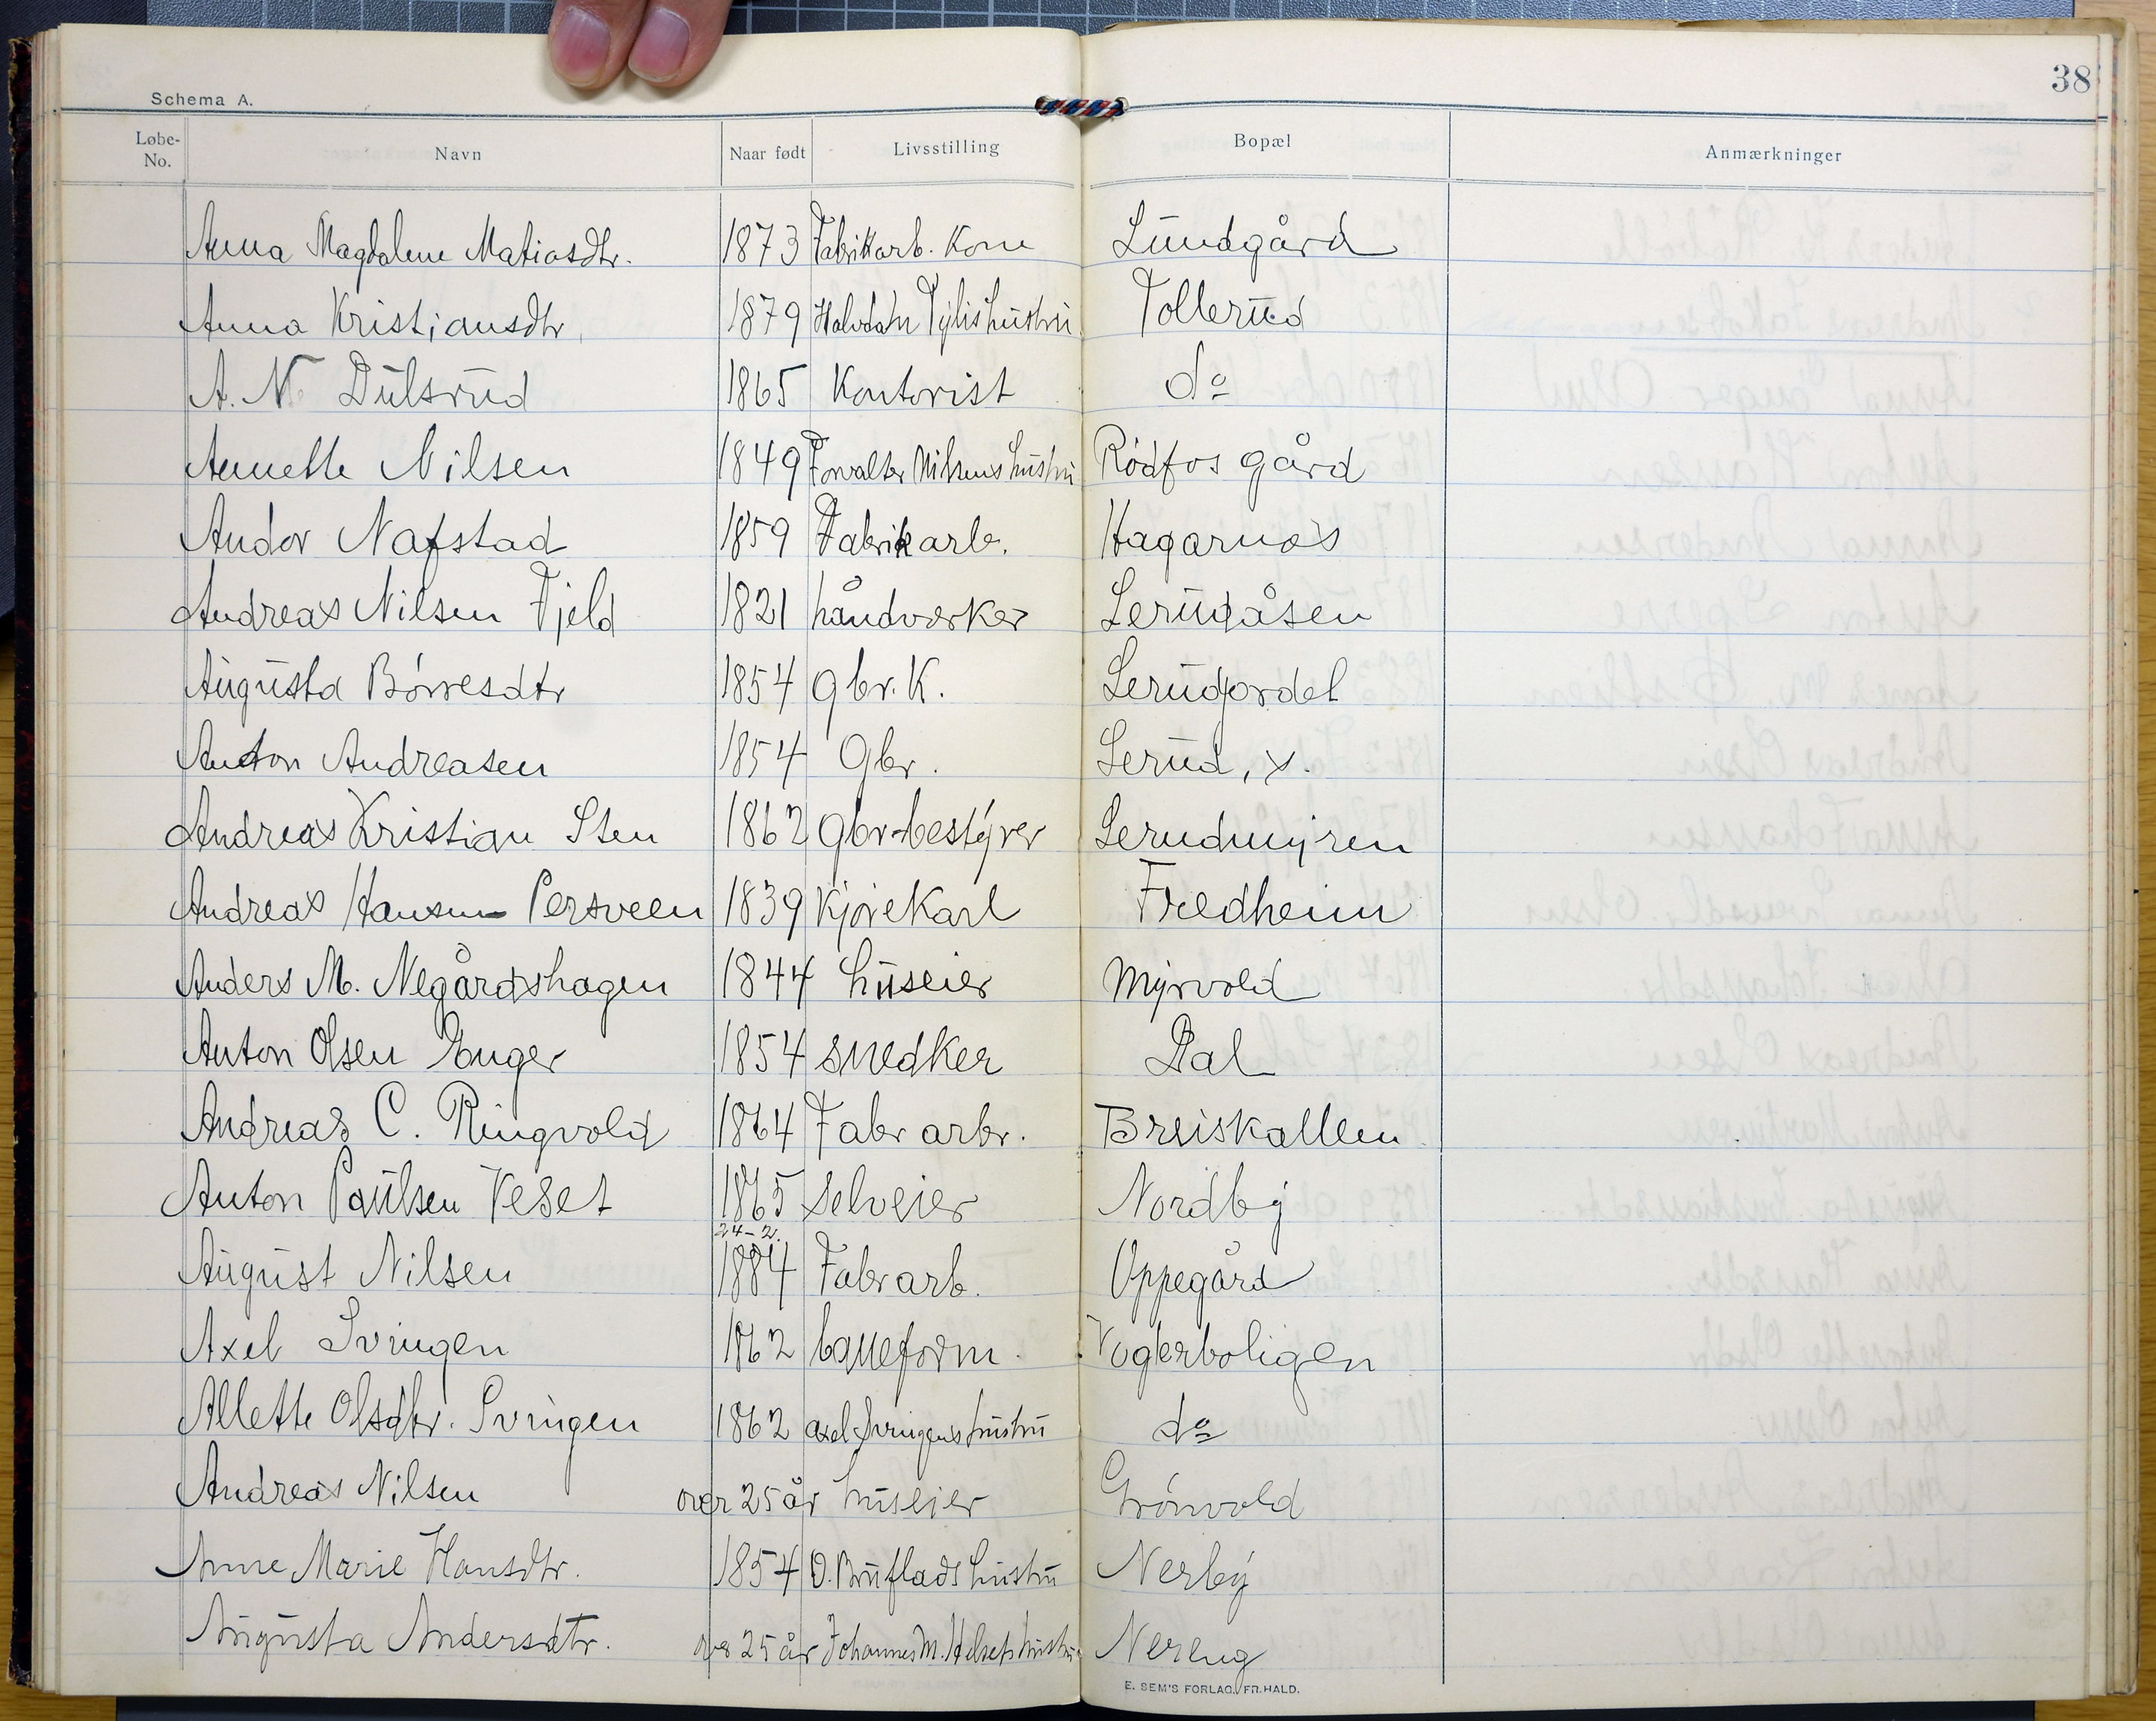 38
Schema A.
Løbe-No. Navn Naar født Livsstilling Bopæl Anmærkninger
Anna Magdalene Matiasdtr. 1873 Fabrikkarb. Kone Lundgård
Anna Kristiansdtr. 1879 Halvdan hustru Tollerud
A. N. Dulsrud 1865 Kontorist do
Annette Nilsen 1849 Forvalter Nilsens hustru Rødfos gård
Andor Nafstad 1859 Fabrikarb. Hagarnæs
Andreas Nilsen Fjeld 1821 håndværker Lerudåsen
Augusta Börresdtr 1854 Gbr. K. Lerud
Anton Andreasen 1854 Gbr. Lerud, x.
Andreas Kristian Sten 1862 Gbr-bestyrer Lerudmyren
Andreas Hansen Persveen 1839 Kjörekarl Fredheim
Anders M. Negårdshagen 1844 huseier Myrvold
Anton Olsen Enger 1854 snedker Dal
Andreas C. Ringvold 1864 Fabr arbr. Breiskallen
Anton Paulsen Veset 1865 selveier Nordby
24-2.
August Nilsen 1884 Fabr arb. Oppegård
Axel Svingen 1862 baneform. Vogterboligen
Allette Olsdtr. Svingen 1862 axel Svingens hustru do
Andreas Nilsen over 25 år huseier Grönvold
Anne Marie Hansdtr. 1854 O. Bruflads hustru Nerby
Augusta Andersdtr. over 25 år Johannes M. Helsets hustru Nereng
E. SEM'S FORLAG, FR. HALD.